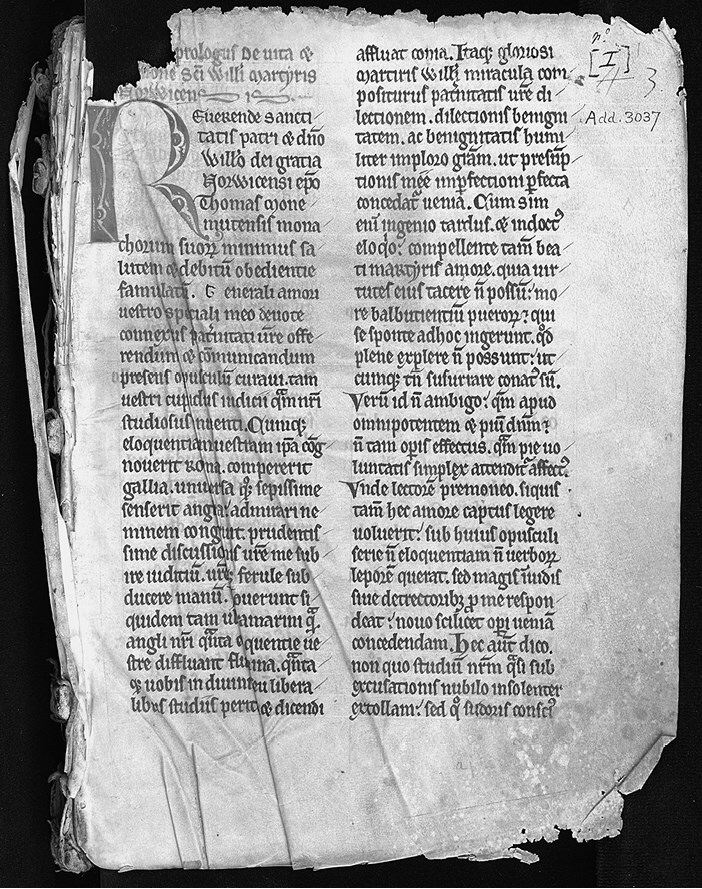 prologus de uita ⁊
one sc̄i Will̄i martyris
Norwicens
REuerende sancti
tatis patri ⁊ dn̄o
Will̄o dei gratia
Norwicensi ep̄o
Thomas mone
mutensis mona
choꝛum suoꝝ minimus sa
lutem ⁊ debitū obedientie
famulatū. Generali amoꝛi
uestro speciali meo deuote
connexus pat̄nitati ur̄e offe
rendum ⁊ cōmunicandum
presens opusculū curaui. tam
uestri cupidus iudicii qm̄ nr̄i
studiosus nuenti. Cumq;
eloquentiam uestram ip̄a cog
nouerit roma. compererit
gallia. uniuersa q; sepissime
senserit anglia. admirari ne
minem congruit. prudentis
sime discussionis ur̄e me sub
ire iuditiū. ur̄eq; ferule sub
ducere manū. Nouerunt si
quidem tam ultramarini q̄m
angli nr̄i q̄nta eloquentie ue
stre diffluant flumina. q̄nta
⁊ uobis in diuinis seu libera
libus studiis peritia ⁊ dicendi
affluat copia. Itaq; gloꝛiosi
martiris Will̄i miracula com
positurus pat̄nitatis ur̄e di
lectionem. dilectionis benigni
tatem. ac benignitatis humi
liter imploꝛo grām. ut presūp
tionis meę imp̄fectioni p̄fecta
concedat̉ uenia. Cum sim
eni̅ ingenio tardus. ⁊ indoctꝰ
eloq̇o: compellente tam̄ bea
ti martyris amoꝛe. quia uir
tutes eius tacere n̄ possū: mo
re balbutientiū pueroꝝ: qui
se sponte ad hoc ingerunt. qd̄
plene explere n̄ possunt: ut
cumq; tn̄ susurrare conat̉ sū.
Verū id n̄ ambigo: qm̄ apud
omnipotentem ⁊ piū dnm̄:
n̄ tam op̄is effectus. qm̄ pię uo
luntatis simplex attendit̉ affectꝰ.
Vnde lectoꝛē premoneo. siquis
tam̄ hec amoꝛe captus legere
uoluerit: sub huius opusculi
serie n̄ eloquentiam n̄ uerboꝝ
lepoꝛē querat. sed magis īuidis
siue detrectoꝛibꝫ p̱ me respon
deat: nouo scilicet op̄i ueniā
concedendam. Hec aut̄ dico.
non quo studiū nrm̄ q̄si sub
excusationis nubilo insolenter
extollam: sed q̇ sudoꝛis consciꝰ
nº
[I]
3
Add. 3037